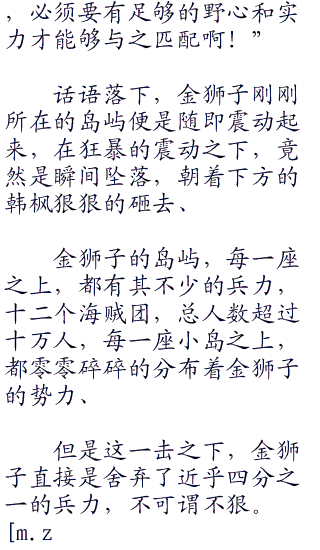 ，必须要有足够的野心和实
力才能够与之匹配啊！”
话语落下，金狮子刚刚
所在的岛屿便是随即震动起
来，在狂暴的震动之下，竟
然是瞬间坠落，朝着下方的
韩枫狠狠的砸去、
金狮子的岛屿，每一座
之上，都有其不少的兵力，
十二个海贼团，总人数超过
十万人，每一座小岛之上，
都零零碎碎的分布着金狮子
的势力、
但是这一击之下，金狮
子直接是舍弃了近乎四分之
一的兵力，不可谓不狠。
[m.z